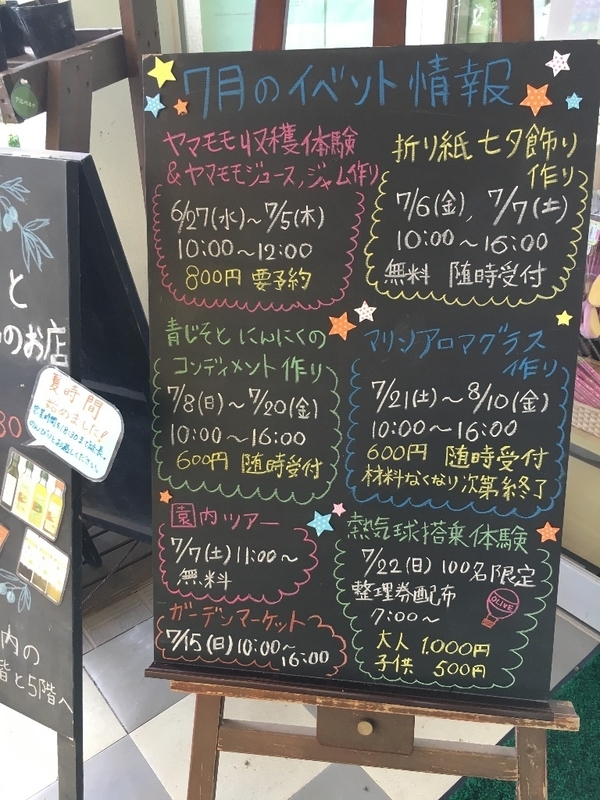 7月のイベント情報
ヤマモモ収穫体験
&ヤマモモジュース,ジャム作り
6/27(水)～7/5(木)
10:00～12:00
800円 要予約
折り紙 七夕飾り
作り
7/6(金), 7/7(土)
10:00～16:00
無料 随時受付
青じそと にんにくの
コンディメント作り
7/8(日)～7/20(金)
10:00～16:00
600円 随時受付
マリンアロマグラス
作り
7/21(土)～8/10(金)
10:00～16:00
600円 随時受付
材料なくなり次第終了
園内ツアー
7/7(土) 11:00～
無料
ガーデンマーケット
7/15(日) 10:00～
16:00
熱気球搭乗体験
7/22(日) 100名限定
整理券配布
7:00～
OLIVE
大人 1.000円
子供 500円
と
のお店
夏時間
始めました!
30
内の
階と5階へ